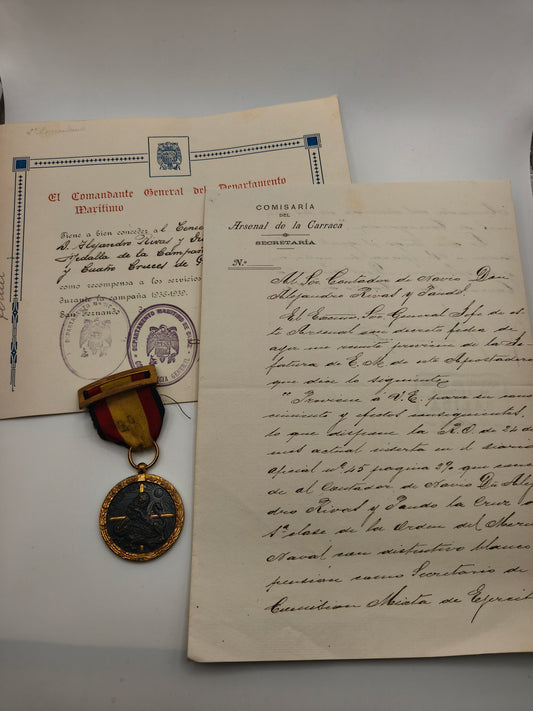 El Comandante General del Departamento
Marítimo
Tiene a bien conceder al
D. Alejandro Rivas y
Medalla de la Campaña
y Cuatro Cruces de
como recompensa a los servicios
durante la campaña 1936-1939.
San Fernando
COMISARÍA
DEL
Arsenal de la Carraca
SECRETARÍA
N.º
Al Sor. Contador de Navio Don
Alejandro Rival y Pando.
El Excmo. Sor General Jefe de es
te Arsenal con decreto fecha de
ayer me remite proviene de la Je
fatura de E. M. de este Apostadero
que dice lo siguiente
"Proviene á V. E. para su cono
cimiento y efectos consiguientes,
lo que dispone la R. O. de 24 de
mes actual inserta en el diario
oficial nº 45 pagina 29 que conce
de al Contador de Navio Dn Ale
dro Rival y Pando la Cruz
1ª clase de la Orden del Meri
Naval con distintivo blanco
pension como Secretario de
Comision Mixta de Ejercit